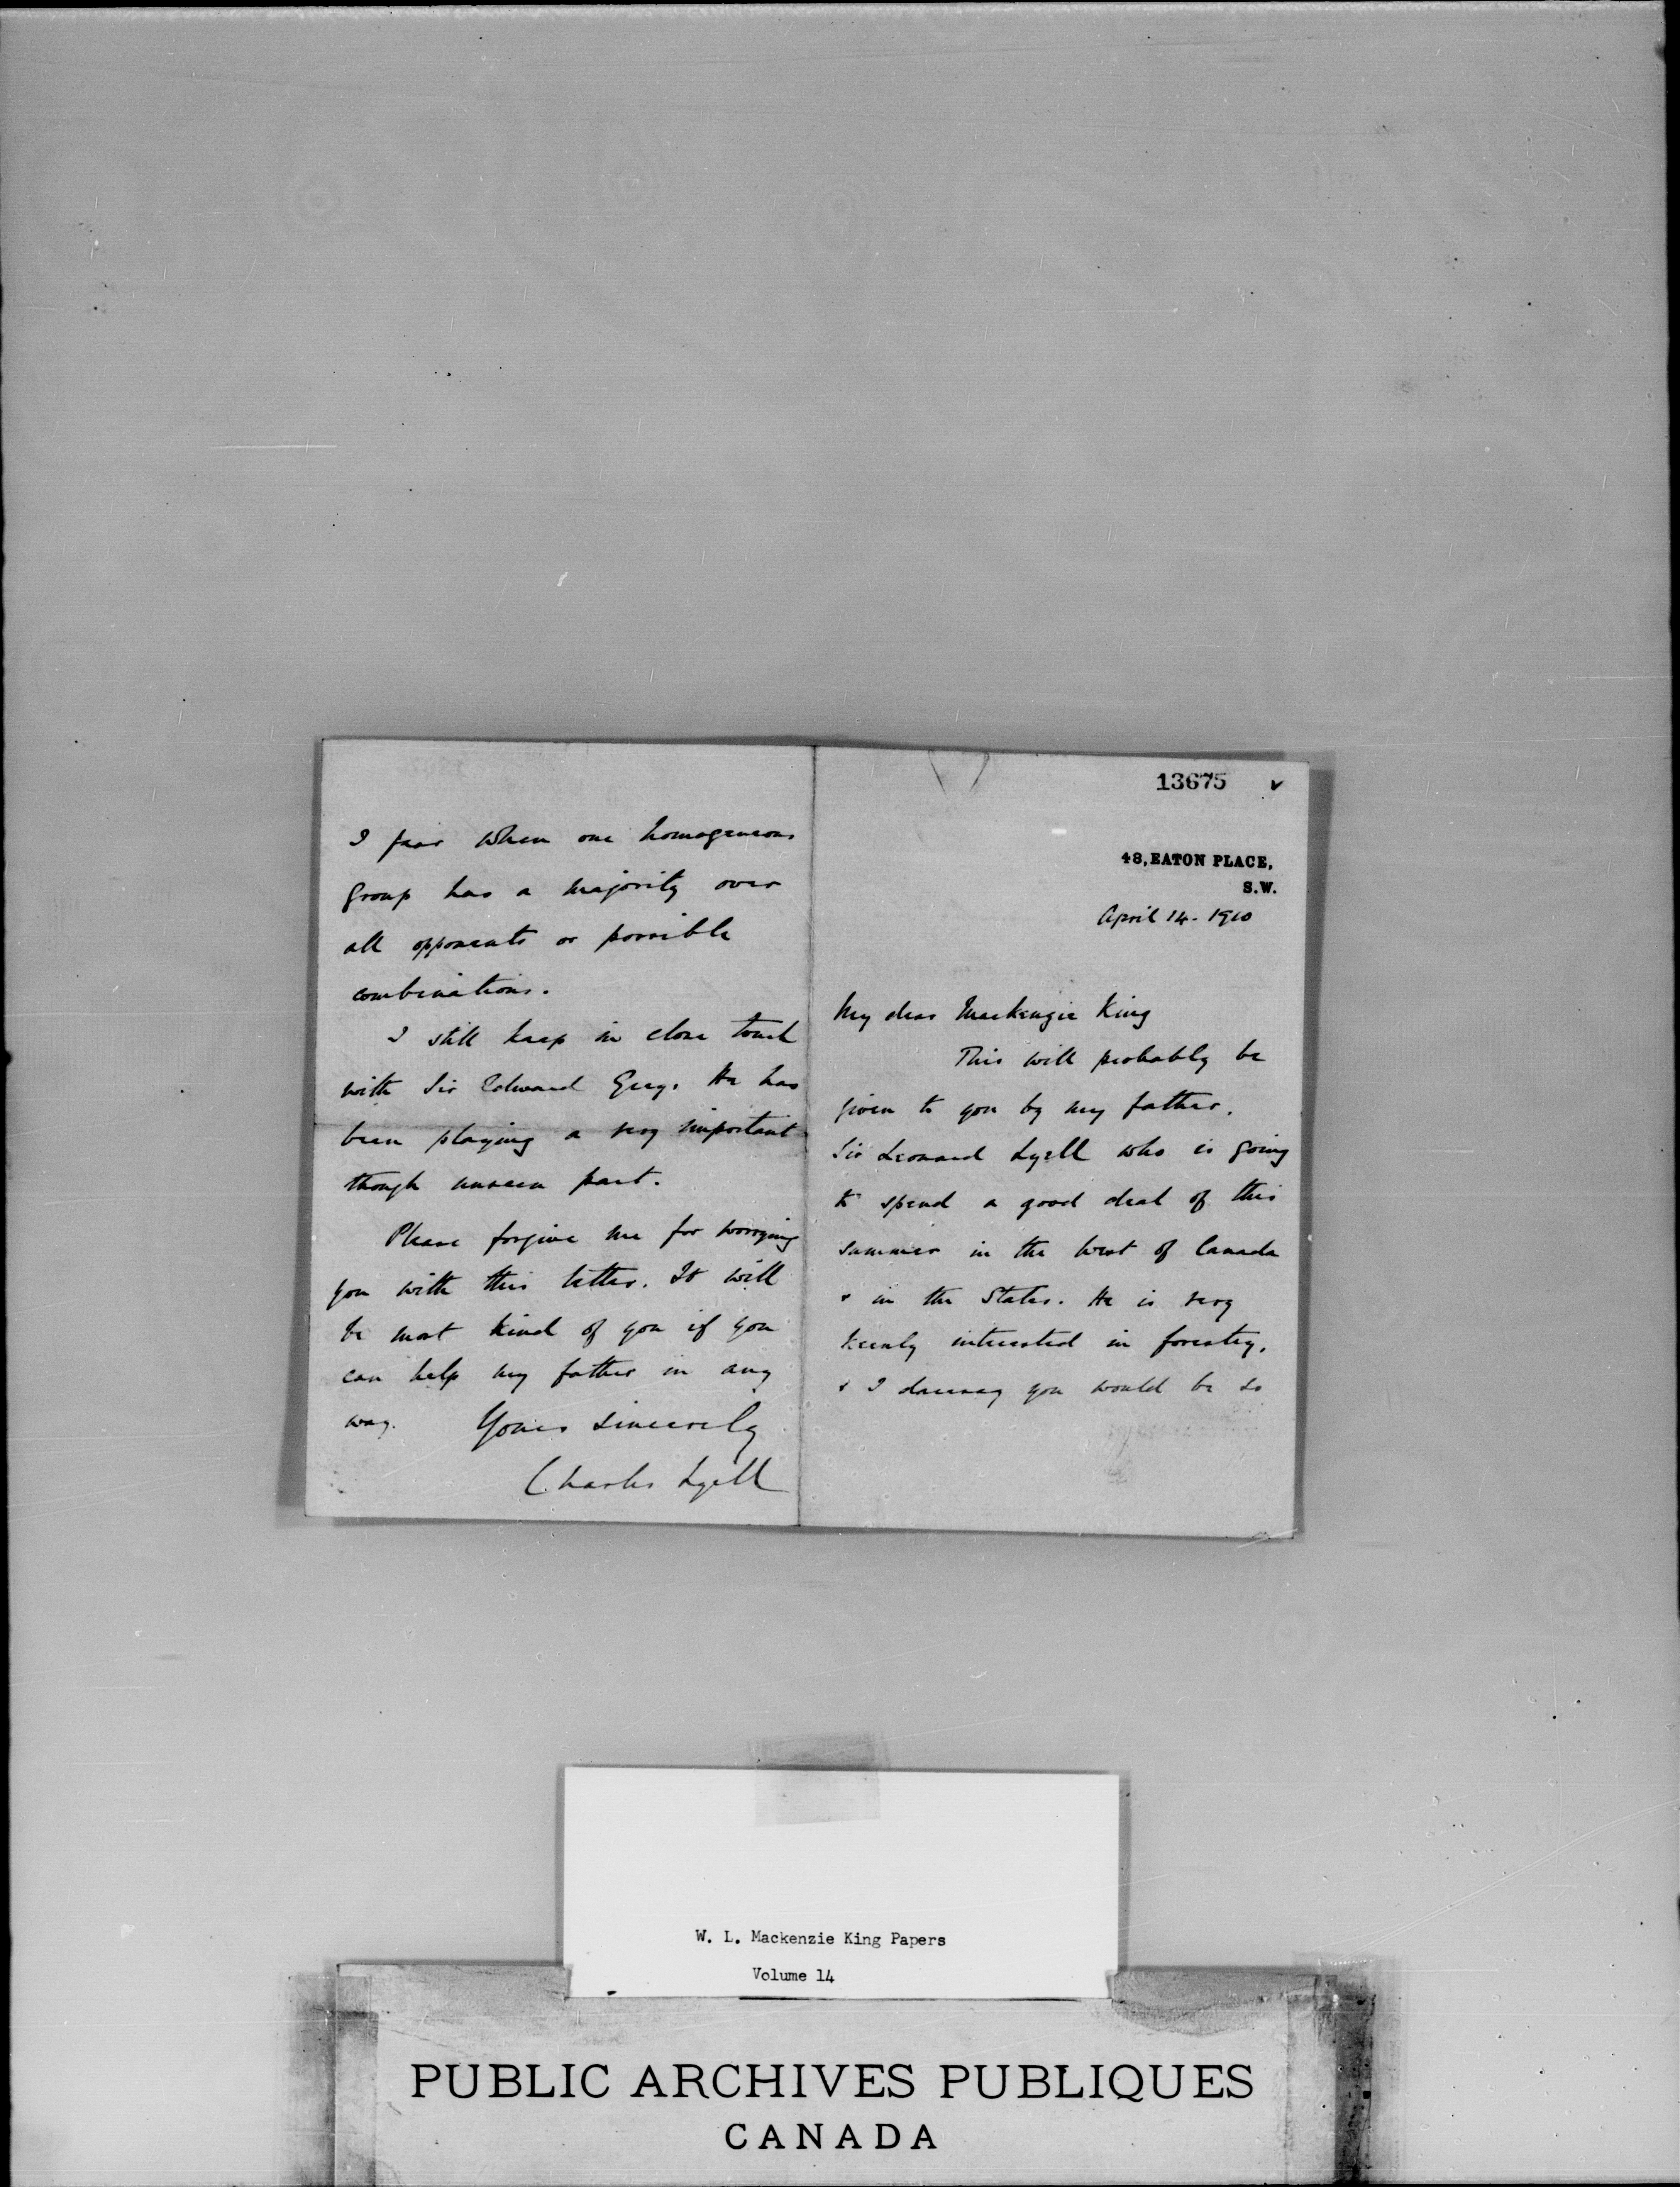 13675 v
48, EATON PLACE,
S.W.
April 14. 1910
My dear Mackenzie King
This will probably be
given to you by my father,
Sir Leonard Lyell who is going
to spend a good deal of this
summer in the West of Canada
& in the States. He is very
keenly interested in forestry,
& I daresay you would be so
I fear when one homogeneous
group has a majority over
all opponents or possible
combinations.
I still keep in close touch
with Sir Edward Grey. He has
been playing a very important
though unseen part.
Please forgive me for worrying
you with this letter. It will
be most kind of you if you
can help my father in any
way. Yours sincerely
Charles Lyell
W. L. Mackenzie King Papers
Volume 14
PUBLIC ARCHIVES PUBLIQUES
CANADA